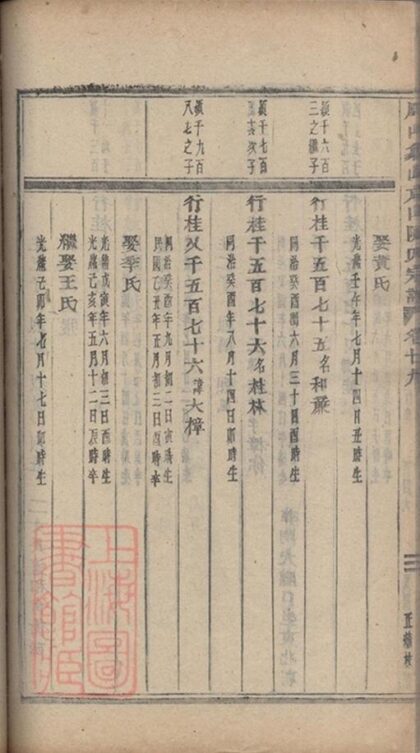 娶黃氏
光緒壬午年七月十四日丑時生
鎮千六百
三之繼子
行桂千五百七十五名和嚴
同治癸酉閏六月三十日酉時生
鎮千七百
行桂千五百七十六名桂林
同治癸酉年八月十四日卯時生
鎮千九百
八之子
行桂又千五百七十六諱大樟
同治癸酉年九月初二日寅時生
民國乙丑年正月初三日未時卒
娶李氏
光緒戊寅年六月初三日酉時生
光緒己亥年五月十二日辰時卒
繼娶王氏
光緒己卯年七月十七日卯時生
卷十九
上海圖書館